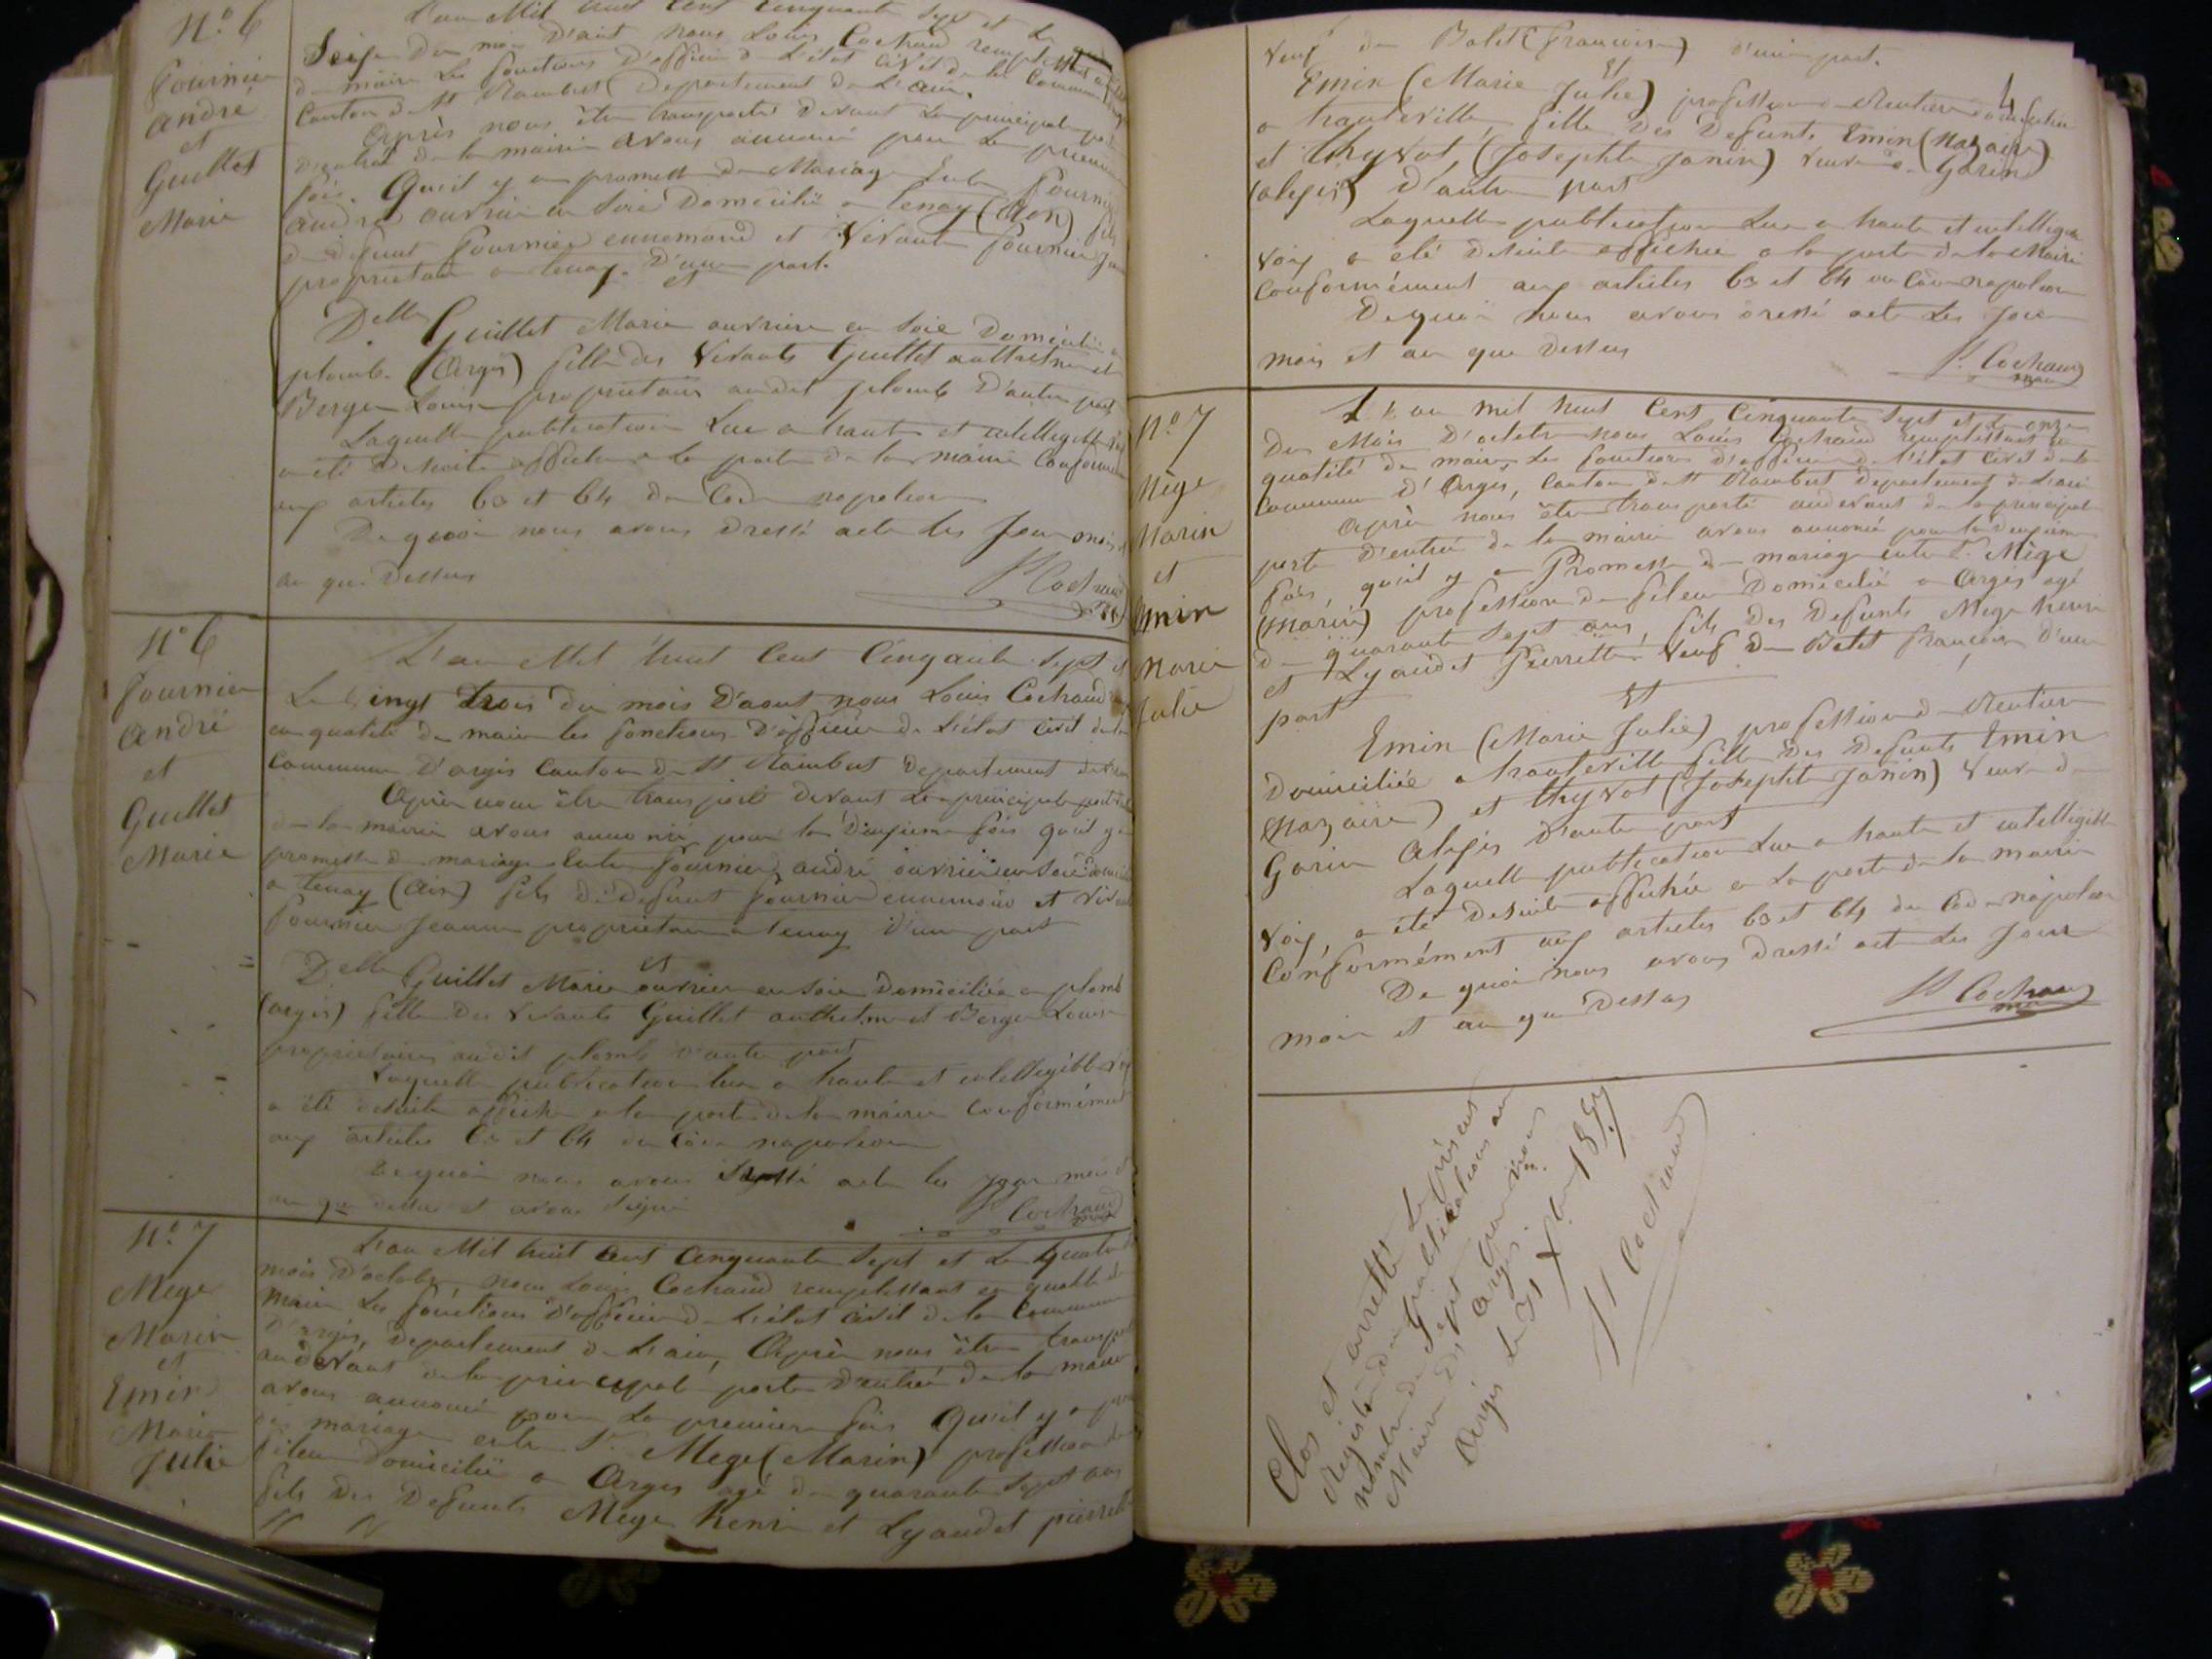 N.o 6
Fournier
andré
et
Guillet
Marie
L'an Mil huit Cent Cinquante Sept et Le
Seize Du mois D'aout nous Louis Cochaud remplissant
de maire Les fonctions D'officier de L'état Civil de la Commune
Canton de St Rambert Departement de L'ain.
Après nous être transporté Devant La principale porte
D'entrée de la mairie avons annoncé pour La premiere
fois. Qu'il y a promesse de Mariage Entre Fournier
andré ouvrier en Soie Domicilié a tenay (Ain) fils
de Defunt Fournier ennemond et Vivante Fournier
proprietaire a tenay. D'une part.
et
Delle Guillet Marie ouvriere en Soie Domiciliée a
plomb. (Argis) fille des Vivants Guillet anthelme et
Berger Louise proprietaires audit plomb D'autre part
Laquelle publication Lue a haute et intelligible
a été De suite affichée a La porte de la mairie Conformement
aux articles 63 et 64 du Code napoleon
De quoi nous avons Dressé acte les Jour mois
an que Dessus
Ls Cochaud
N.o 6
Fournier
André
et
Guillet
Marie
L'an Mil huit Cent Cinqante Sept et
Le Vingt trois du mois D'aout nous Louis Cochaud
en qualité de maire les fonctions D'officier de L'état Civil de la
Commune D'argis Canton de St Rambert Departement de L'ain
Après nous être transporté devant La principale porte
de la mairie avons annoncé pour la Deuxieme fois qu'il y a
promesse de mariage Entre Fournier andré ouvrier en Soie
a tenay (Ain) fils de Defunt Fournier ennemond et Vivante
Fournier Jeanne proprietaire a tenay D'une part
et
Delle Guillet Marie ouvriere en Soie Domiciliée a plomb
(argis) fille Des Vivants Guillet anthelme et Berger Louise
proprietaires audit plomb D'autre part
Laquelle publication lue a haute et intelligible
a été desuite affichée a la porte de la mairie Conformément
aux articles 63 et 64 du Code napoleon
De quoi nous avons Dressé acte les jour mois
an que dessus et avons Signé
Ls Cochaud
N.o 7
Mege
Marin
et
Emin
Marie
Julie
L'an Mil huit Cent Cinquante Sept et Le quatre
mois D'octobre nous Louis Cochaud remplissant en qualité de
Maire Les fonctions D'officier de L'état Civil de la Commune
D'argis, Departement de L'ain, Après nous être
au devant de la principale porte D'entrée de la mairie
avons annoncé pour La premiere fois Qu'il y a
de mariage entre Sr. Mege (Marin) profession de
fileur Domicilié a Argis agé de quarante Sept ans
fils Des Defunts Mege Henri et Lyaudet pierrette
4
Veuf de Balet (francoise) D'une part.
Et
Emin (Marie Julie) profession de Rentiere domiciliée
a hauteville fille Des Defunts Emin (Nazaire)
et thyvot, (Josephte Janin) Veuve de Garin
(alexis) D'autre part
Laquelle publication Lue a haute et intelligible
Voix a été Desuite affichée a la porte de la Mairie
Conformément aux articles 63 et 64 du Code napoleon
De quoi nous avons Dressé acte Les Jour
mois et an que Dessus
Ls Cochaud
N.o 7
Mège
Marin
et
Emin
Marie
Julie
L'an mil huit Cent Cinquante Sept et Le onze
Du Mois D'octobre nous Louis Cochaud remplissant en
qualité de maire, Les fonctions D'officier de L'état Civil de la
Commune D'Argis, Canton de St Rambert Departement de L'ain
Après nous être transporté audevant de la principale
porte D'entrée de la mairie avons annoncé pour la Deuxieme
fois, qu'il y a Promesse de mariage entre Sr. Mège
(Marin) profession de fileur Domicilié a Argis agé
de quarante Sept ans, fils Des Defunts Mege Henri
et Lyaudet Pierrette. Veuf de Balet françoise D'une
part
Et
Emin (Marie Julie) profession de Rentiere
Domiciliée a hauteville fille Des Defunts Emin
(Nazaire) et thyvot (Josephte Janin) Veuve de
Garin Alexis D'autre part
Laquelle publication Lue a haute et intelligible
Voix, a été Desuite affichée a La porte de la mairie
Conformément aux articles 63 et 64 du Code napoleon
De quoi nous avons Dressé acte Les Jour
mois et an que Dessus
Ls Cochaud
Clos et arretté Le présent
Registre de Publications au
nombre de Sept par nous
Maire D'Argis.
Argis Le 31 Xbre 1857
Ls Cochaud